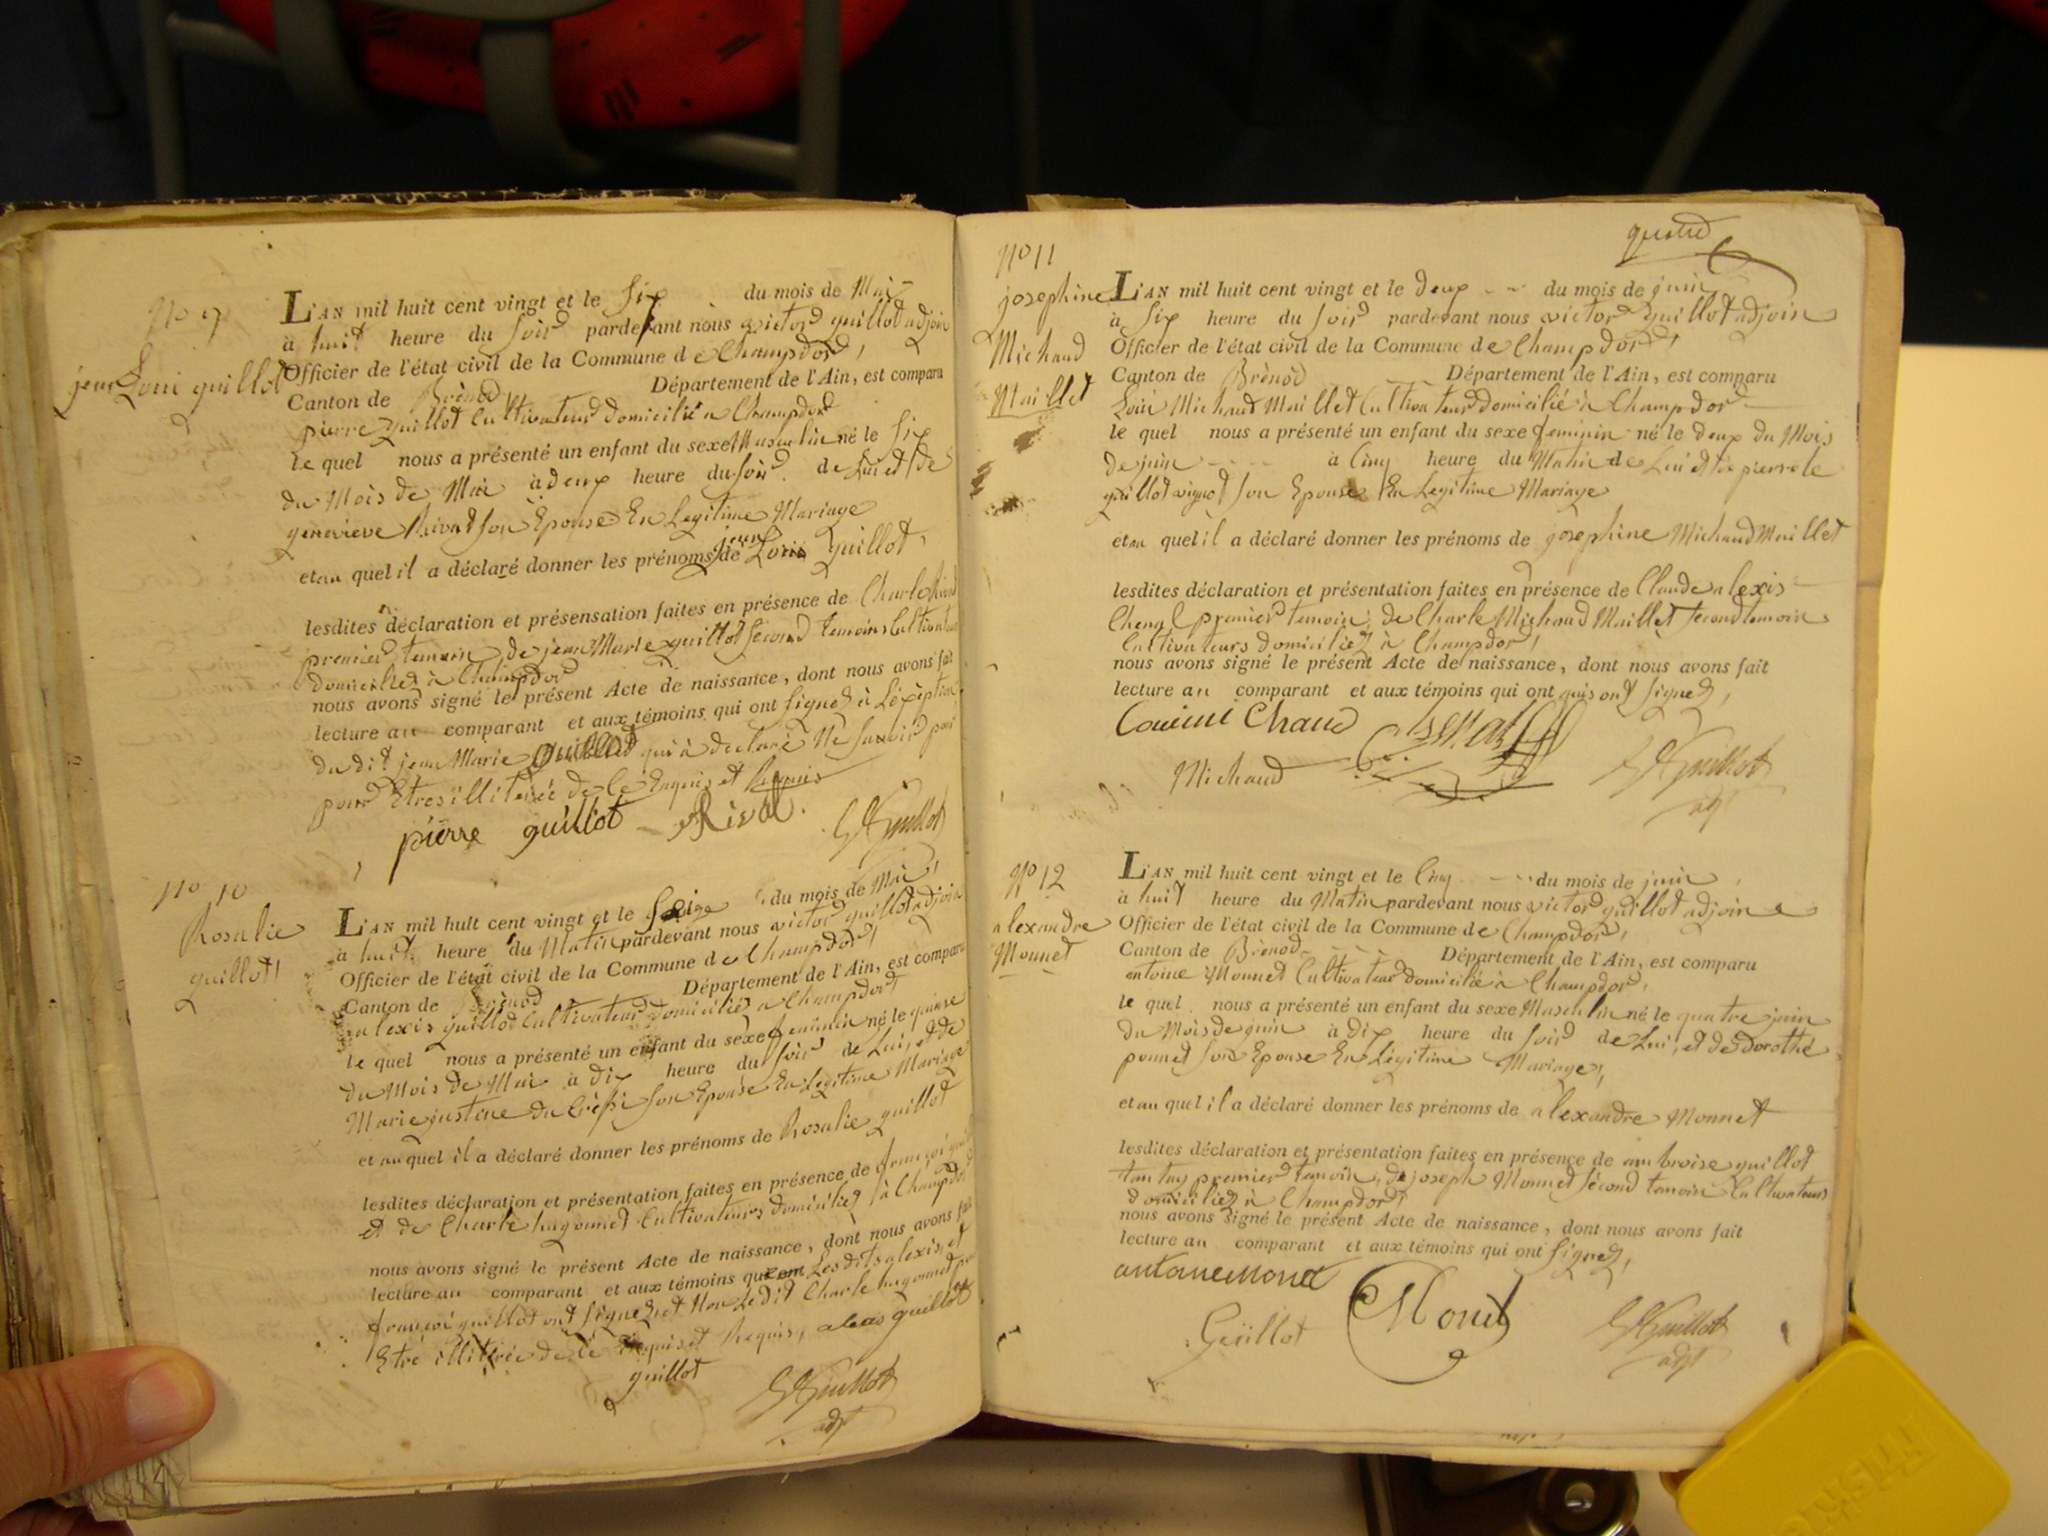 No 9
jean Loui guillot
L'AN mil huit cent vingt et le Six du mois de Mai
à huit heure du soir pardevant nous victor guillot adjoin
Officier de l'état civil de la Commune de Champdor,
Canton de Brénod Département de l'Ain, est comparu
pierre guillot Cultivateur domicilié à Champdor
le quel nous a présenté un enfant du sexe Masculin né le Six
du Mois de Mai à deux heure du soir de Lui et de
genevieve Rivat son Epouse En Legitime Mariage
et au quel il a déclaré donner les prénoms de jean Loui guillot
lesdites déclaration et présensation faites en présence de Charle Rivat
premier temoin, de jean Marie guillot second temoins Cultivateurs
domiciliez à Champdor
nous avons signé le présent Acte de naissance, dont nous avons fait
lecture au comparant et aux témoins qui ont signez à L'éxeption
du dit jean Marie guillot qui à declaré Ne savoir
pour Etre illiteréé de ce Enquis et Requis
pierre guillot Rivat
Guillot
No 10
Rosalie
guillot
L'AN mil huit cent vingt et le seize du mois de Mai,
à huit heure du Matin pardevant nous victor guillot adjoin
Officier de l'état civil de la Commune de Champdor,
Canton de Brénod Département de l'Ain, est comparu
alexis guillot Cultivateur domiciliez a Champdor
le quel nous a présenté un enfant du sexe feminin né le quinse
du Mois de Mai à dix heure du soir de Lui, et de
Marie justine du Crépi son Epouse En Legitime Mariage
et au quel il a déclaré donner les prénoms de Rosalie guillot
lesdites déclaration et présentation faites en présence de françoi
et de Charle hugonnet Cultivateurs domiciliez à Champdor
nous avons signé le présent Acte de naissance, dont nous avons fait
lecture au comparant et aux témoins qui ont Lesdits alexis, et
françoi guillot ont signez et Non Le dit Charle hugonnet pour
Etre illiterée de ce Enquis et Requis, alexis guillot
guillot
Guillot
adjt
No 11
josephine
Michaud
Maillet
L'AN mil huit cent vingt et le deux du mois de juin
à Six heure du soir pardevant nous victor guillot adjoin
Officier de l'état civil de la Commune de Champdor,
Canton de Brénod Département de l'Ain, est comparu
Loui Michaud Maillet Cultivateur domicilié à Champdor
le quel nous a présenté un enfant du sexe feminin né le deux du Mois
de juin à Cinq heure du Matin de Lui et de pierrete
guillot vignot son Epouse En Legitime Mariage
et au quel il a déclaré donner les prénoms de josephine Michaud Maillet
lesdites déclaration et présentation faites en présence de Claude alexis
premier temoin, de Charle Michaud Maillet second temoin
Cultivateurs domiciliez à Champdor,
nous avons signé le présent Acte de naissance, dont nous avons fait
lecture au comparant et aux témoins qui ont quis ont signez,
Michaud
Guillot
adjt
No 12
alexandre
Monnet
L'AN mil huit cent vingt et le Cinq du mois de juin,
à huit heure du Matin pardevant nous victor guillot adjoin
Officier de l'état civil de la Commune de Champdor,
Canton de Brénod Département de l'Ain, est comparu
antoine Monnet Cultivateur domicilié à Champdor,
le quel nous a présenté un enfant du sexe Masculin né le quatre juin
du Mois de juin à dix heure du soir de Lui, et de dorothé
ponnet son Epouse En Légitime Mariage,
et au quel il a déclaré donner les prénoms de alexandre Monnet
lesdites déclaration et présentation faites en présence de ambroise guillot
tantay premier temoin, de joseph Monnet second temoin Cultivateurs
domiciliez à Champdor
nous avons signé le présent Acte de naissance, dont nous avons fait
lecture au comparant et aux témoins qui ont signez,
antoine monet
Guillot Monet
Guillot
adjt